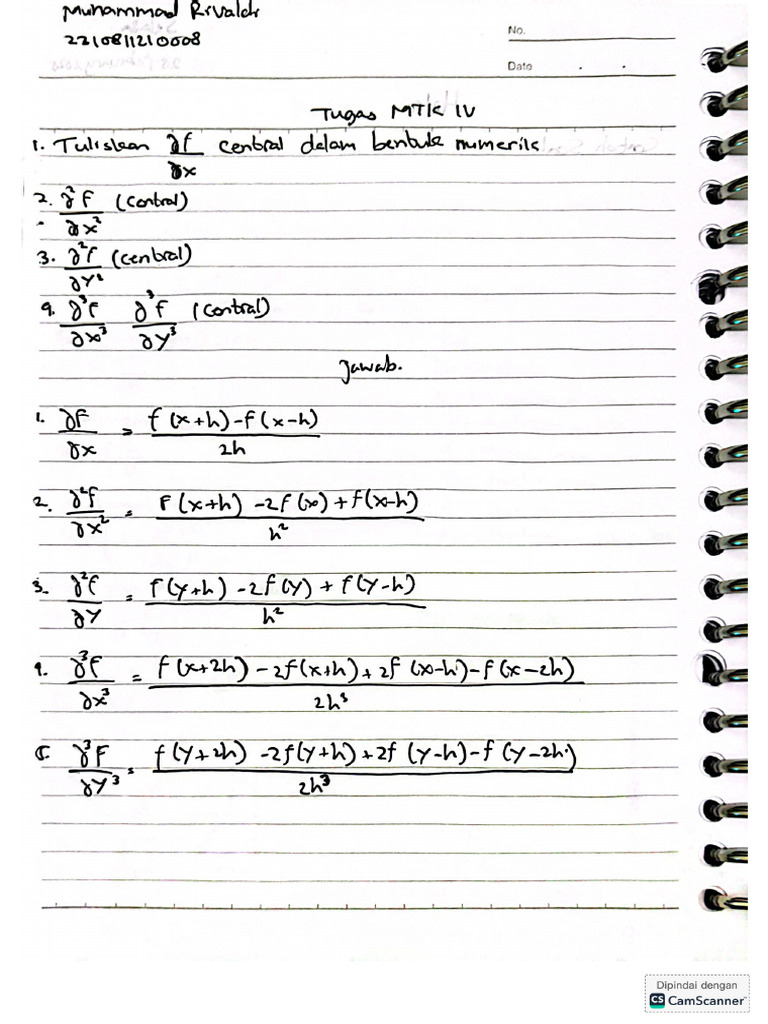 Muhammad Rivaldi
2210811210008
No.
Date . .
Tugas MTK IV
1. Tuliskan ∂f/∂x central dalam bentuk numerik
2. ∂²f/∂x² (central)
3. ∂²f/∂y² (central)
4. ∂³f/∂x³ ∂³f/∂y³ (central)
Jawab.
1. ∂f/∂x = f(x+h)-f(x-h)/2h
2. ∂²f/∂x² = f(x+h)-2f(x)+f(x-h)/h²
3. ∂²f/∂y = f(y+h)-2f(y)+f(y-h)/h²
4. ∂³f/∂x³ = f(x+2h)-2f(x+h)+2f(x-h)-f(x-2h)/2h³
5. ∂³f/∂y³ = f(y+2h)-2f(y+h)+2f(y-h)-f(y-2h)/2h³
Dipindai dengan
CS CamScanner